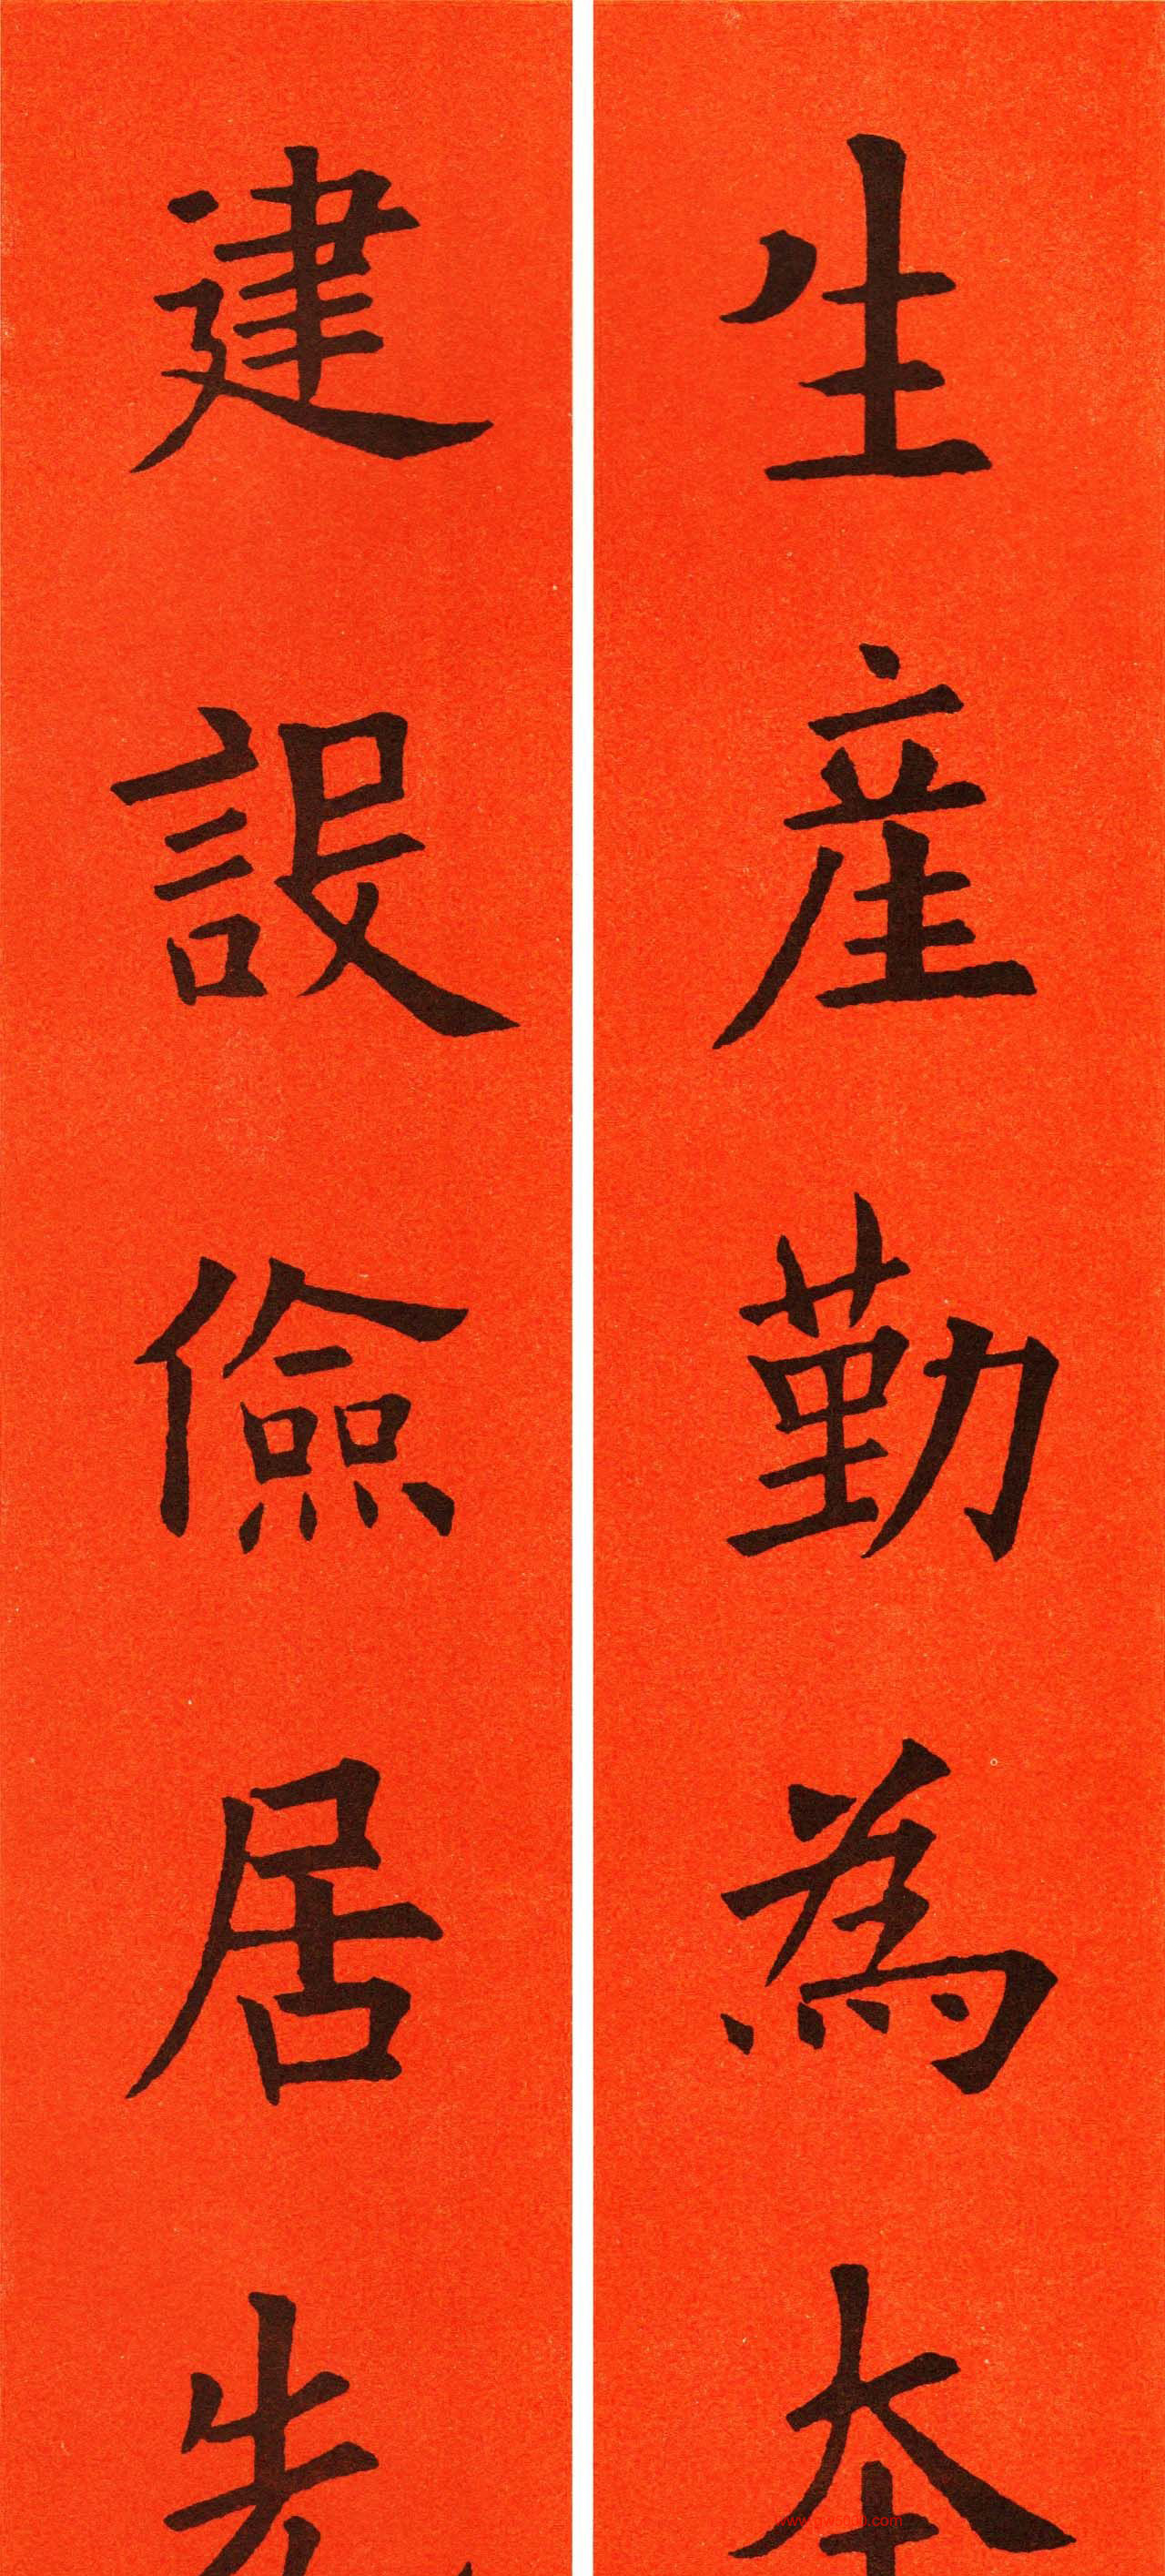 生産勤為本
建設儉居先